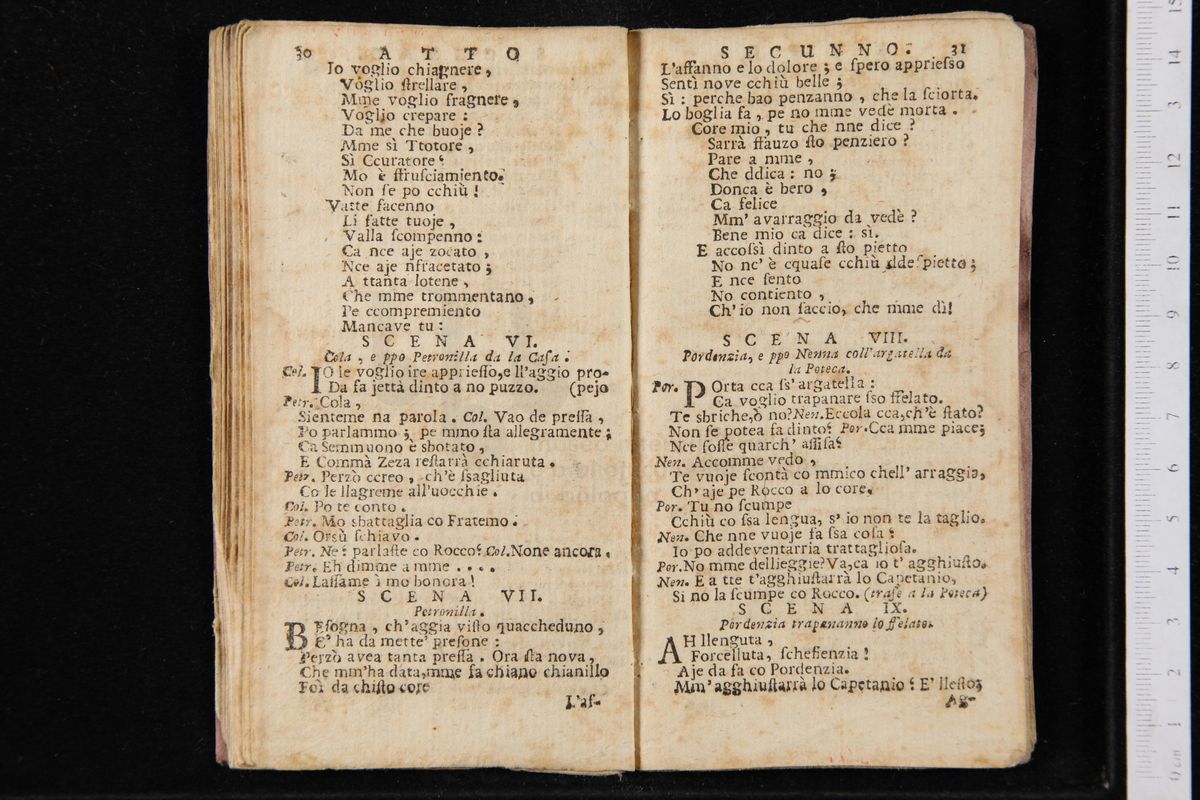 30 ATTO
Io voglio chiagnere,
Voglio ſtrellare,
Mme voglio fragnere,
Voglio crepare:
Da me che buoje?
Mme sì Ttotore,
Sì Ccuratore?
Mo è ſtruſciamiento.
Non ſe po cchiù!
Vatte facenno
Li fatte tuoje,
Valla ſcompenno:
Ca nce aje zocato,
Nce aje nfracetato;
A ttanta lotene,
Che mme trommentano,
Pe ccompremiento
Mancave tu:
SCENA VI.
Cola, e ppo Petronilla da la Caſa.
Col. IO le voglio ire apprieſſo, e ll'aggio pro-
Da fa jettà dinto a no puzzo. (pejo
Petr. Cola,
Sienteme na parola. Col. Vao de preſſa,
Po parlammo; pe mmo ſta allegramente;
Ca Semmuono è sbotato,
E Commà Zeza reſtarrà cchiaruta.
Petr. Perzò ccreo, ch'è ſsagliuta
Co le llagreme all'uocchie.
Col. Po te conto.
Petr. Mo sbattaglia co Fratemo.
Col. Orsù ſchiavo.
Petr. Ne? parlaſte co Rocco? Col. None ancora.
Petr. Eh dimme a mme . . . .
Col. Laſſame ì mo bonora!
SCENA VII.
Petronilla.
BEſogna, ch'aggia viſto quaccheduno,
E' ha da mette' preſone:
Perzò avea tanta preſſa. Ora ſta nova,
Che mm'ha data, mme fa chiano chianillo
Foì da chiſto core
L'af-
SECUNNO. 31
L'affanno e lo dolore; e ſpero apprieſſo
Sentì nove cchiù belle;
Sì: perche bao penzanno, che la ſciorta.
Lo boglia fa, pe no mme vedè morta.
Core mio, tu che nne dice?
Sarrà ffauzo ſto penziero?
Pare a mme,
Che ddica: no;
Donca è bero,
Ca felice
Mm' avarraggio da vedè?
Bene mio ca dice: sì.
E accoſsì dinto a ſto pietto
No nc' è cquaſe cchiù ddeſpietto;
E nce ſento
No contiento,
Ch' io non ſaccio, che mme dì!
SCENA VIII.
Pordenzia, e ppo Nenna coll'argatella da
la Poteca.
Por. POrta cca ſs' argatella:
Ca voglio trapanare ſso ffelato.
Te sbriche, ò no? Nen. Eccola cca, ch'è ſtato?
Non ſe potea fa dinto? Por. Cca mme piace;
Nce foſſe quarch' aſſiſa?
Nen. Accomme vedo,
Te vuoje ſcontà co mmico chell' arraggia,
Ch' aje pe Rocco a lo core.
Por. Tu no ſcumpe
Cchiù co ſsa lengua, s' io non te la taglio.
Nen. Che nne vuoje fa ſsa coſa?
Io po addeventarria trattaglioſa.
Por. No mme dellieggie? Va, ca io t' agghiuſto.
Nen. E a tte t'agghiuſtarrà lo Capetanio,
Si no la ſcumpe co Rocco. (traſe a la Poteca)
SCENA IX.
Pordenzia trapananno lo ffelato.
AH llenguta,
Forcelluta, ſchefienzia!
Aje da fa co Pordenzia.
Mm' agghiuſtarrà lo Capetanio? E' lleſto;
Ag-
0 cm 1 2 3 4 5 6 7 8 9 10 11 12 13 14 15